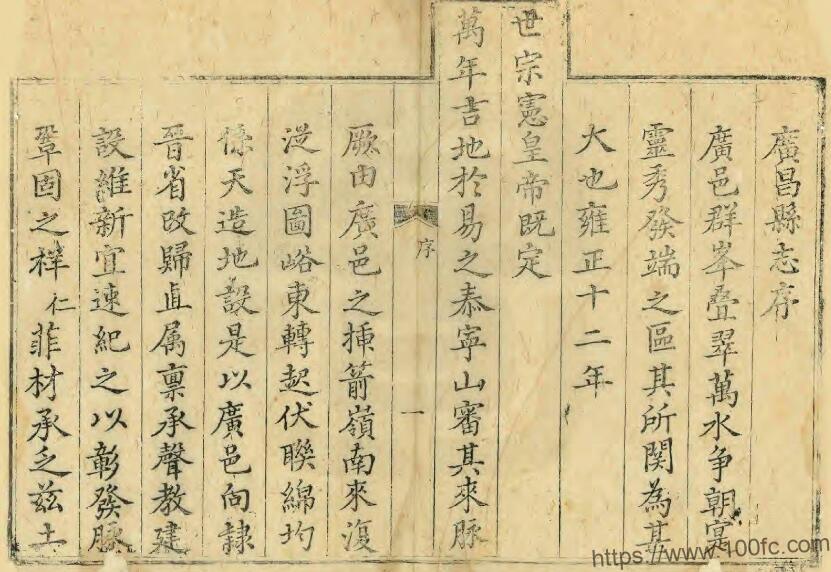 廣昌縣志序
廣邑群峯疊翠萬水争朝寔
靈秀發端之區其所関為甚
大也雍正十二年
世宗憲皇帝既定
萬年吉地於易之泰寧山審其來脉
序
一
厥由廣邑之揷箭嶺南來復
從浮圖峪東轉起伏聯綿均
係天造地設是以廣邑向隷
晉省改歸直属禀承聲教建
設維新宜速紀之以彰發脉
鞏固之祥仁菲材承乏兹土
https://www.100fc.com